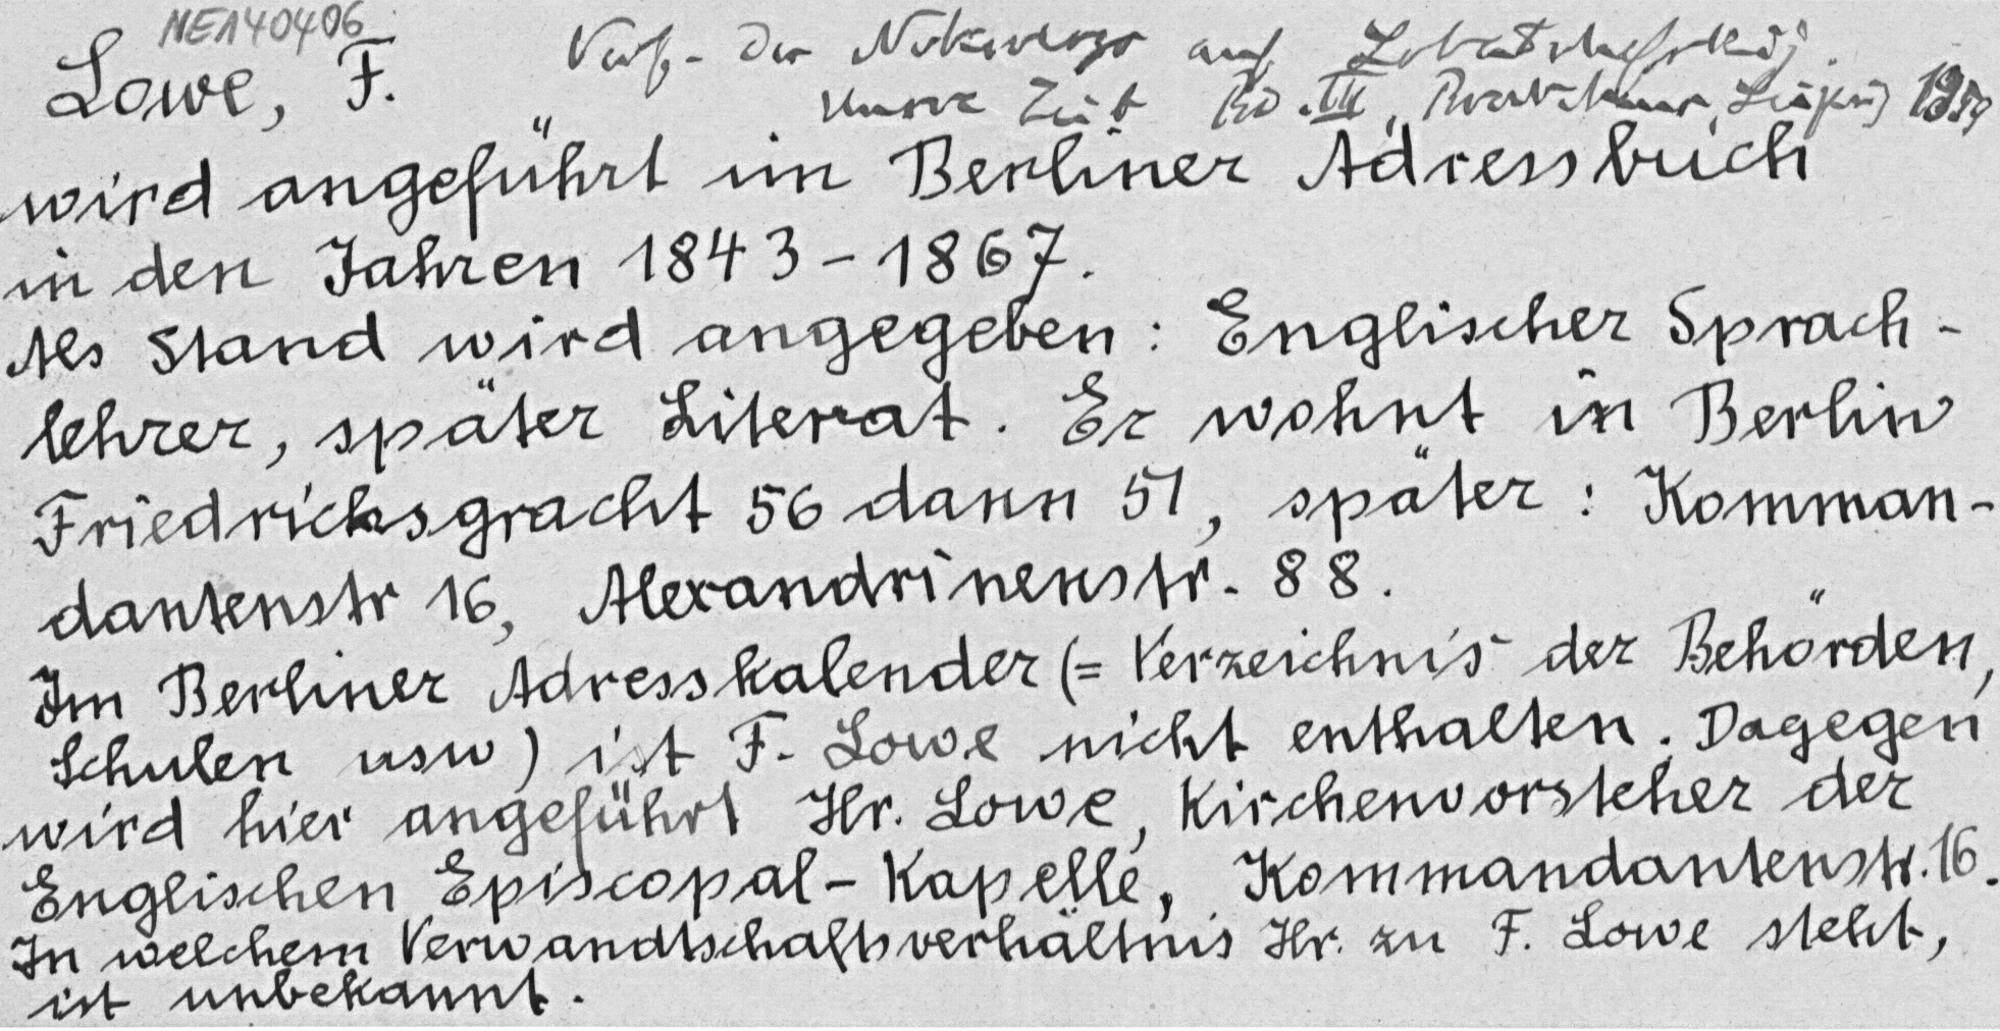 NE140406
Lowe, F.
Verf. der Nekrologe auf
Unsere Zeit Bd. III, Brockhaus, Leipzig 1859
wird angeführt im Berliner Adressbuch
in den Jahren 1843-1867.
Als Stand wird angegeben: Englischer Sprach-
lehrer, später Literat. Er wohnt in Berlin
Friedrichsgracht 56 dann 51, später: Komman-
dantenstr 16, Alexandrinenstr. 88.
Im Berliner Adresskalender (= Verzeichnis der Behörden,
Schulen usw) ist F. Lowe nicht enthalten. Dagegen
wird hier angeführt Hr. Lowe, Kirchenvorsteher der
Englischen Episcopal-Kapelle, Kommandantenstr. 16.
In welchem Verwandtschaftsverhältnis Hr. zu F. Lowe steht,
ist unbekannt.